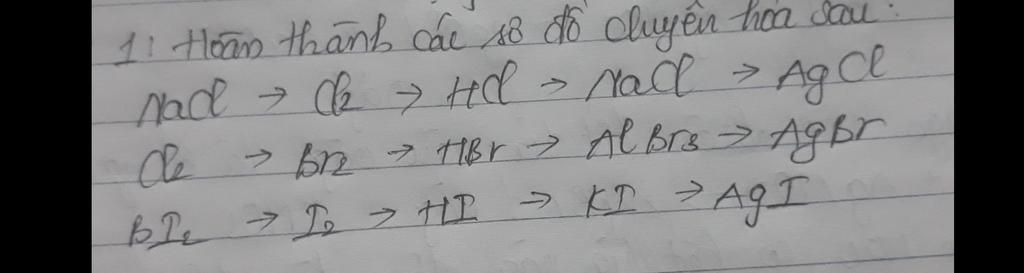 1: Hoàn thành các sơ đồ chuyên hóa sau:
NaCl → Cl₂ → HCl → NaCl → AgCl
Cl₂ → Br₂ → HBr → AlBr₃ → AgBr
BI₂ → I₂ → HI → KI → AgI